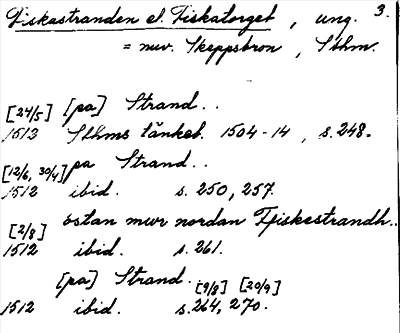 Fiskastranden el. Fiskatorget, ung. 3.
= nuv. Skeppsbron, Sthm.
[24/5] [pa] Strand..
1513 Sthms tänkeb. 1504-14, s. 248.
[12/6, 30/4] pa Strand..
1512 ibid. s. 250, 257.
[2/8] östan mur nordan Ffiskestrandh..
1512 ibid. s. 261.
[pa] Strand. [9/8] [20/9]
1512 ibid. s. 264, 270.